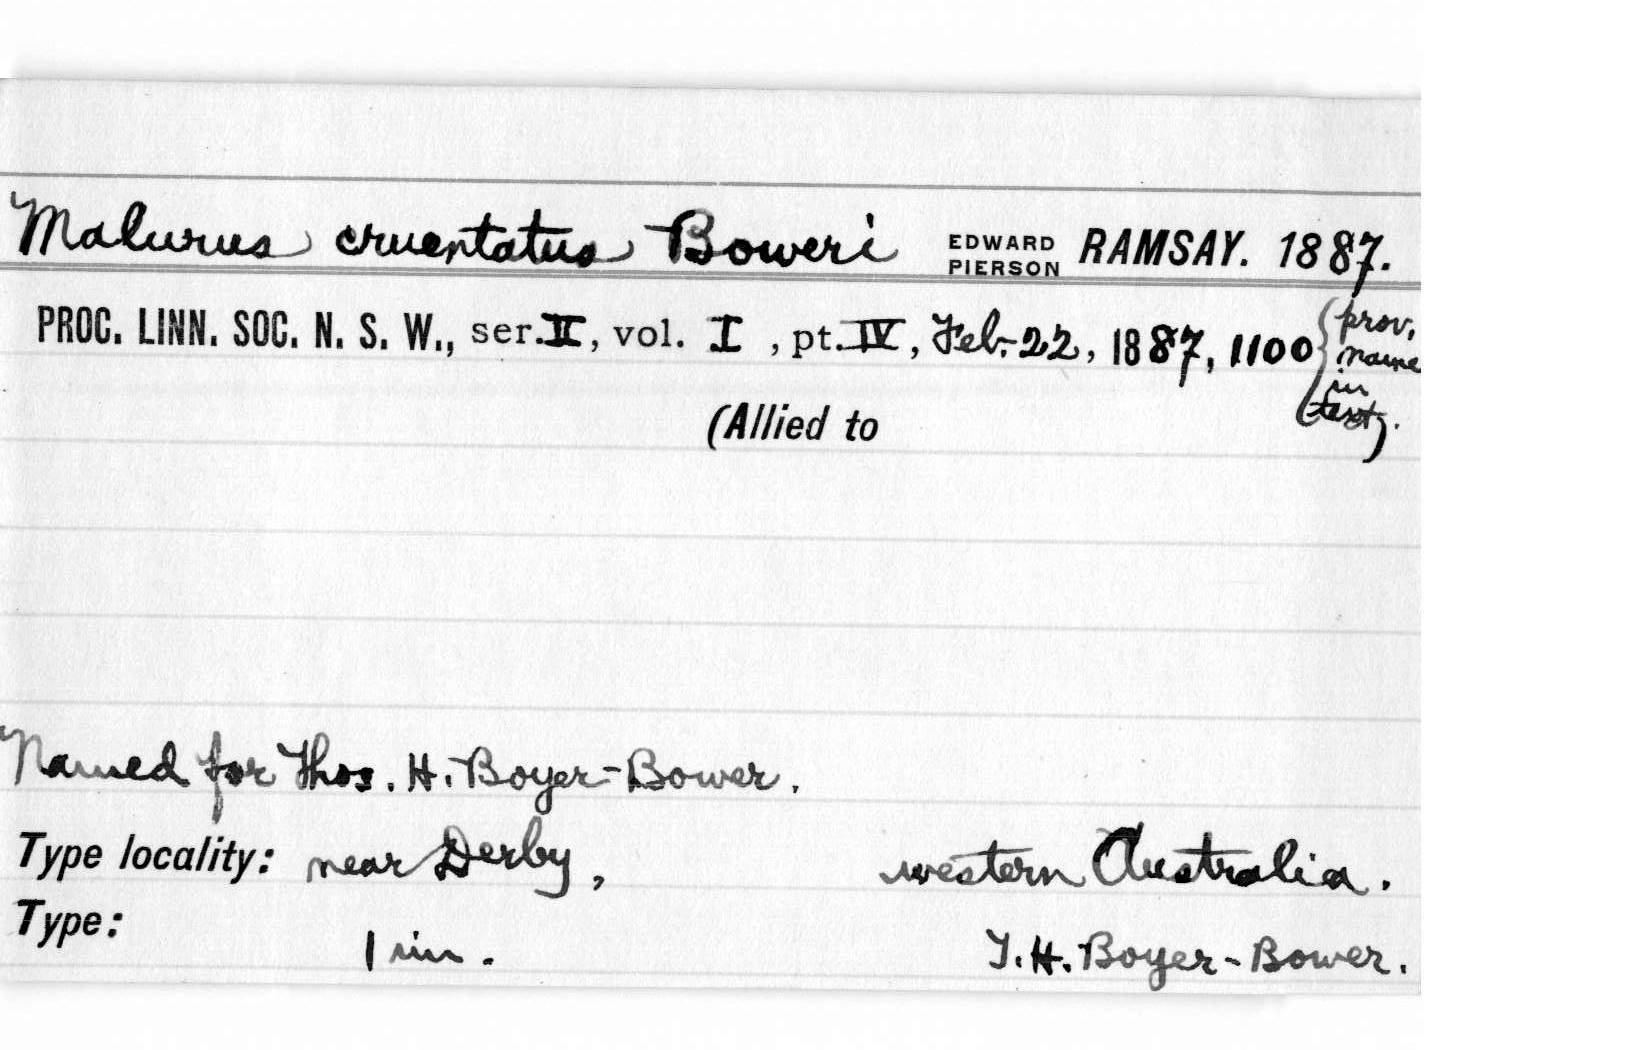 Malurus cruentatus Boweri EDWARD PIERSON RAMSAY. 1887.
PROC. LINN. SOC. N. S. W., ser. II, vol. I, pt. IV, Feb. 22, 1887, 1100 {prov. name in text).
(Allied to
Named for Thos. H. Boyer-Bower.
Type locality: near Derby, western Australia.
Type: 1 im. T. H. Boyer-Bower.